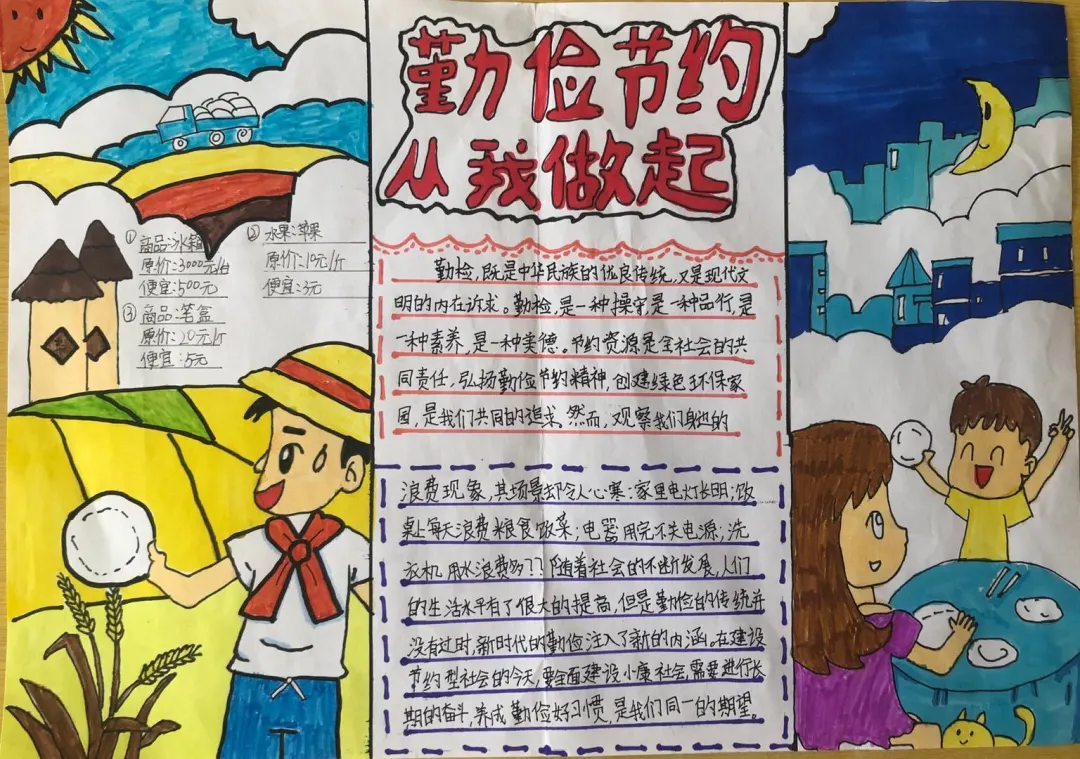 勤俭节约
从我做起
①商品:冰箱
原价:3000元/台
便宜:500元
②水果:苹果
原价:10元/斤
便宜:3元
③商品:笔盒
原价:20元/个
便宜:5元
勤检,既是中华民族的优良传统,又是现代文
明的内在诉求。勤检,是一种操守,是一种品行,是
一种素养,是一种美德。节约资源是全社会的共
同责任,弘扬勤俭节约精神,创建绿色环保家
园,是我们共同的追求。然而,观察我们身边的
浪费现象,其场景却令人心寒:家里电灯长明;饭
桌上每天浪费粮食饭菜;电器用完不关电源;洗
衣机用水浪费吗??随着社会的不断发展,人们
的生活水平有了很大的提高,但是勤俭的传统并
没有过时,新时代的勤俭注入了新的内涵。在建设
节约型社会的今天,要全面建设小康社会,需要进行长
期的奋斗,养成勤俭好习惯,是我们同一的期望。